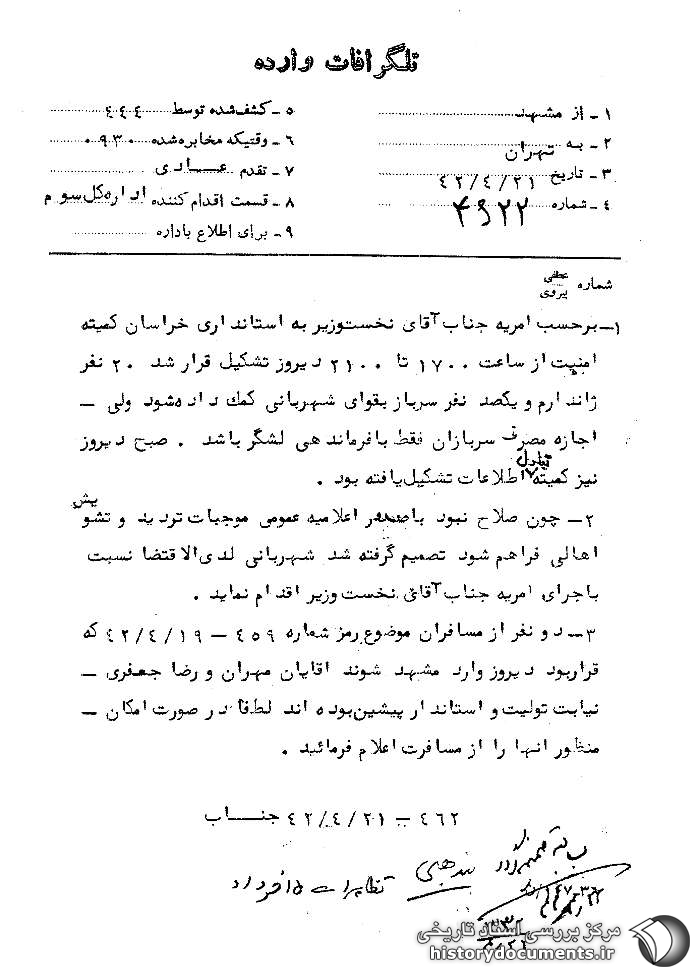 تلگرافات وارده
۱ـ از مشهد
۲ـ به تهران
۳ـ تاریخ ۴۲/۴/۲۱
۴ـ شماره ۴۹۲۲
۵ـ کشف شده توسط ۴۴۴
۶ـ وقتیکه مخابره شده ۰۹۳۰
۷ـ تقدم عـادی
۸ـ قسمت اقدام کننده اداره کل سوم
۹ـ برای اطلاع باداره
شماره عطفی
پیروی
۱ـ برحسب امریه جناب آقای نخست وزیر به استانداری خراسان کمیته
امنیت از ساعت ۱۷۰۰ تا ۲۱۰۰ دیروز تشکیل قرار شد ۲۰ نفر
ژاندارم و یکصد نفر سرباز بقوای شهربانی کمک داده شود ولی ـ
اجازه مصرف سربازان فقط بافرماندهی لشگر باشد . صبح دیروز
نیز کمیته تبادل اطلاعات تشکیل یافته بود .
۲ـ چون صلاح نبود باصدور اعلامیه عمومی موجبات تردید و تشویش
اهالی فراهم شود تصمیم گرفته شد شهربانی لدی الاقتضا نسبت
باجرای امریه جناب آقای نخست وزیر اقدام نماید .
۳ـ دو نفر از مسافران موضوع رمز شماره ۴۵۹ ـ ۴۲/۴/۱۹ که
قرار بود دیروز وارد مشهد شوند اقایان مهران و رضا جعفری ـ
نیابت تولیت و استاندار پیشین بوده اند لطفا در صورت امکان ـ
منظور انها را از مسافرت اعلام فرمائید .
۴۶۲ ـ ۴۲/۴/۲۱ جنـاب
تظاهرات ۱۵ خرداد
مرکز بررسی اسناد تاریخی
historydocuments.ir